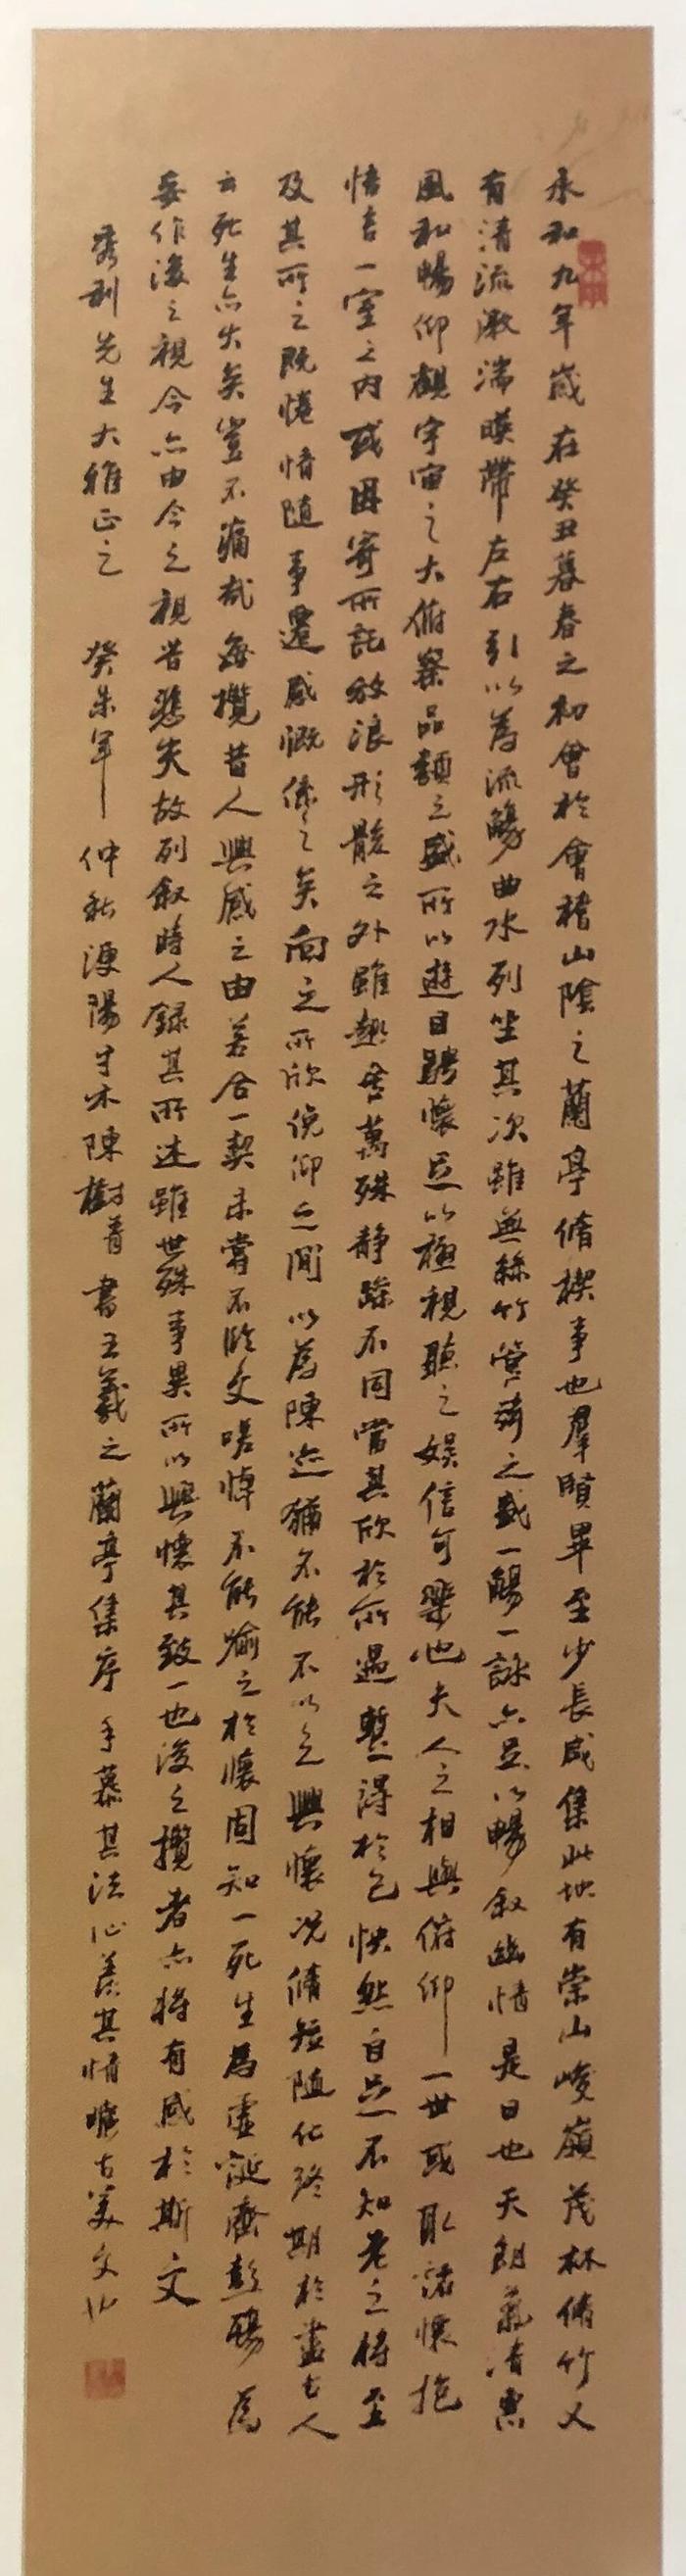 永和九年歲在癸丑暮春之初會於會稽山陰之蘭亭脩禊事也羣賢畢至少長咸集此地有崇山峻嶺茂林脩竹又
有清流激湍暎帶左右引以為流觴曲水列坐其次雖無絲竹管絃之盛一觴一詠亦足以暢叙幽情是日也天朗氣清惠
風和暢仰觀宇宙之大俯察品類之盛所以遊目騁懷足以極視聽之娱信可樂也夫人之相與俯仰一世或取諸懷抱
悟言一室之內或因寄所託放浪形骸之外雖趣舍萬殊静躁不同當其欣於所遇暫得於己怏然自足不知老之將至
及其所之既惓情隨事遷感慨係之矣向之所欣俛仰之間以為陳迹猶不能不以之興懷况脩短隨化終期於盡古人
云死生亦大矣豈不痛哉每攬昔人興感之由若合一契未嘗不臨文嗟悼不能喻之於懷固知一死生為虛誕齊彭殤為
妄作後之視今亦由今之視昔悲夫故列叙時人錄其所述雖世殊事異所以興懷其致一也後之攬者亦將有感於斯文
秀利先生大雅正之 癸未年仲秋 陽寸木陳樹青書王羲之蘭亭集序手慕其法心羡其情曠古美文也